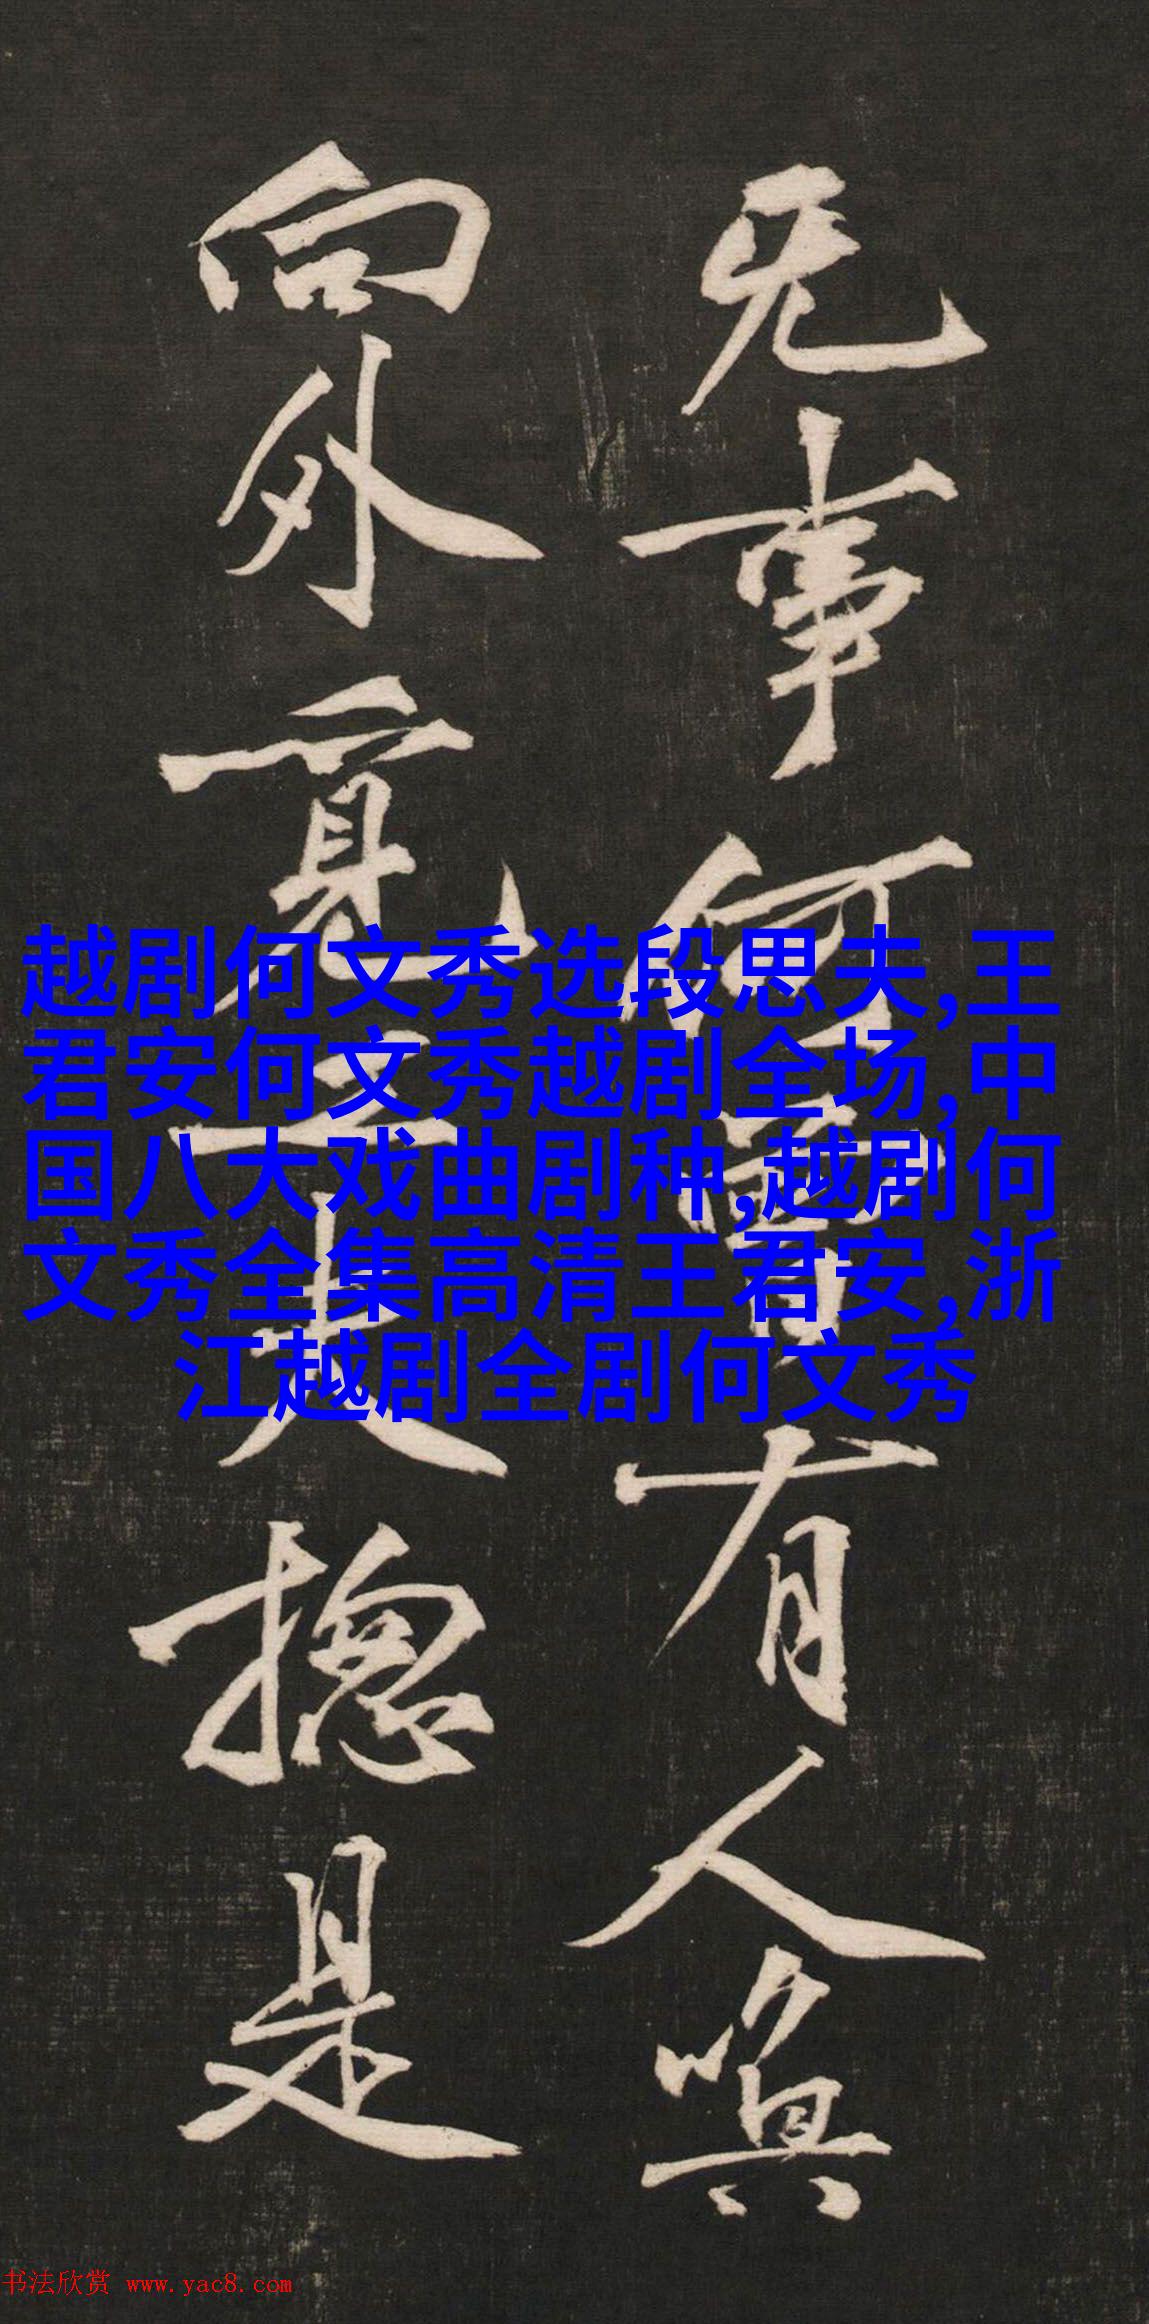 旡事何有人
向外覓工夫揔是
越剧何文秀选段思夫,王
君安何文秀越剧全场,中
国八大戏曲剧种,越剧何
文秀全集高清王君安,浙
江越剧全剧何文秀
书法欣赏 www.yac8.com